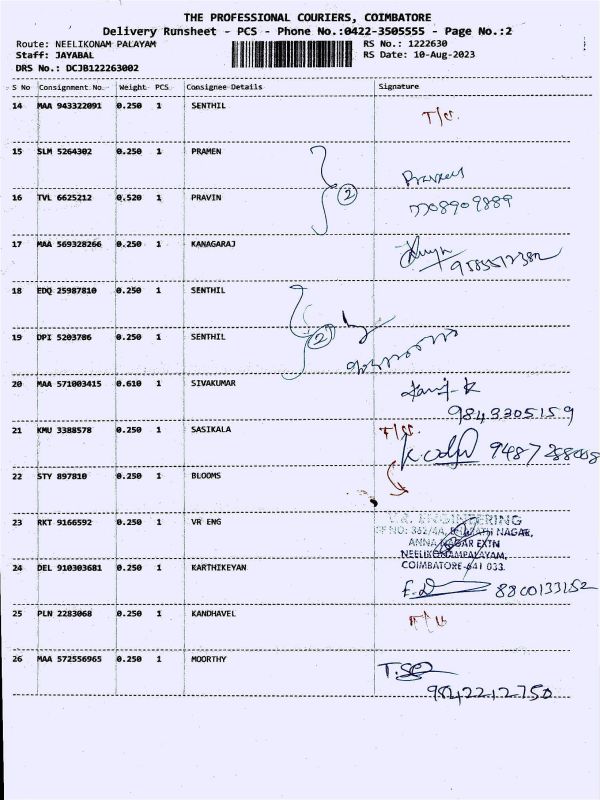 THE PROFESSIONAL COURIERS, COIMBATORE
Delivery Runsheet - PCS - Phone No.:0422-3505555 - Page No.:2
Route: NEELIKONAM PALAYAM
RS No.: 1222630
Staff: JAYABAL
RS Date: 10-Aug-2023
DRS No.: DCJB122263002
S No Consignment No. Weight PCS Consignee Details Signature
14 MAA 943322091 0.250 1 SENTHIL
15 SLM 5264302 0.250 1 PRAMEN
16 TVL 6625212 0.520 1 PRAVIN
2
Praveen
7708909889
17 MAA 569328266 0.250 1 KANAGARAJ
18 EDQ 25987810 0.250 1 SENTHIL
19 DPI 5203786 0.250 1 SENTHIL
2
20 MAA 571003415 0.610 1 SIVAKUMAR
9843305159
21 KMU 3388578 0.250 1 SASIKALA
22 STY 897810 0.250 1 BLOOMS
23 RKT 9166592 0.250 1 VR ENG
V.R. ENGINEERING
SF NO: 362/4A, BHARATHI NAGAR,
ANNA NAGAR EXTN
NEELIKONAMPALAYAM,
COIMBATORE-641 033.
24 DEL 910303681 0.250 1 KARTHIKEYAN
8800133152
25 PLN 2283068 0.250 1 KANDHAVEL
26 MAA 572556965 0.250 1 MOORTHY
9842212750